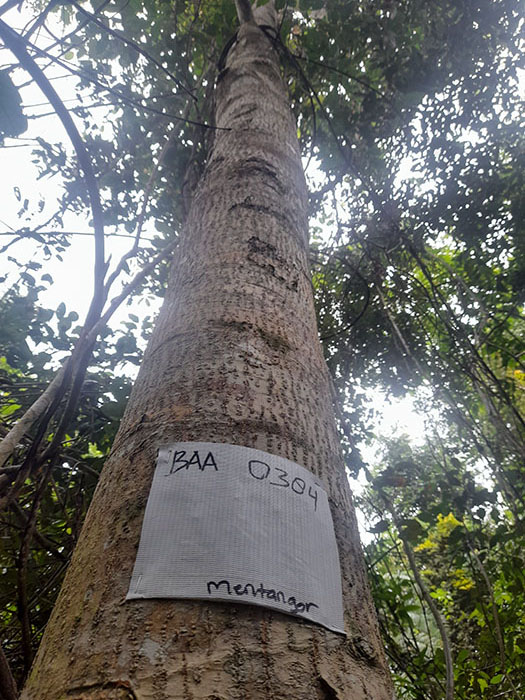 BAA 0304
Mentangor